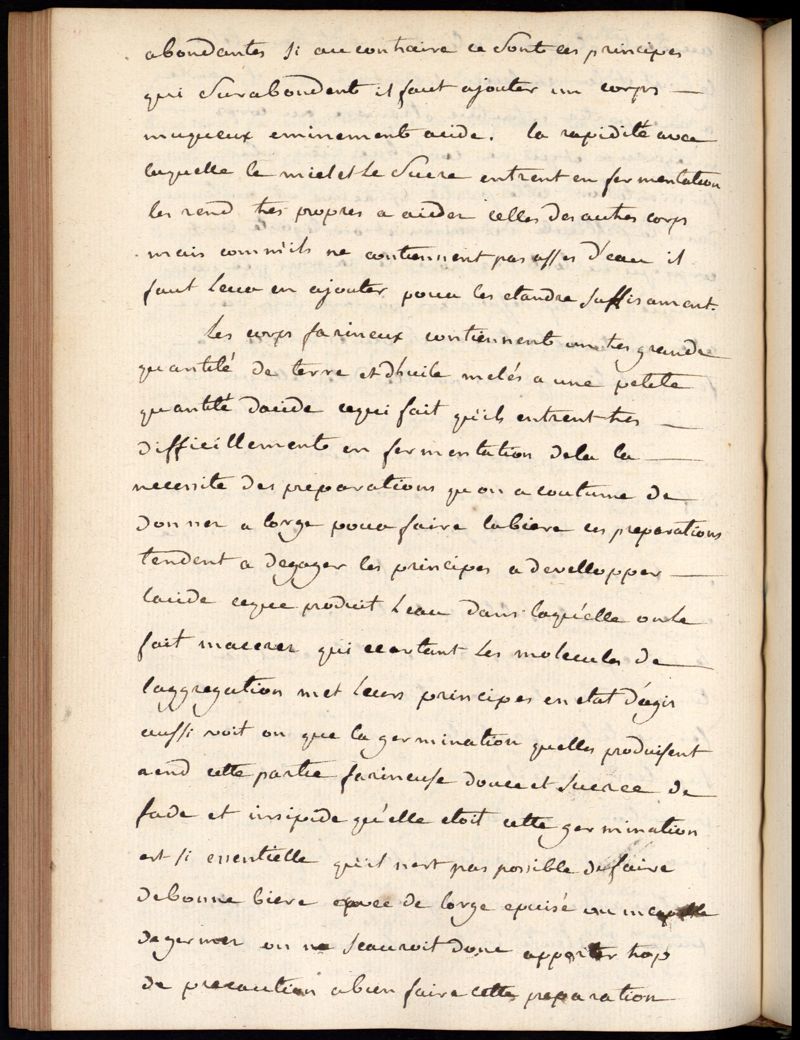 abondantes si au contraire ce sont ces principes
qui surabondent il faut ajouter un corps —
muqueux eminement acide. la rapidité avec
laquelle le miel et le sucre entrent en fermentation
les rend tres propres a aider celles des autres corps
mais comm'ils ne contiennent pas asses d'eau il
faut leur en ajouter pour les etandre suffisament.
les corps farineux contiennent un tres grande
quantité de terre et d'huile melés a une petite
quantité dacide cequi fait qu'ils entrent tres —
difficillement en fermentation dela la —
necessite des preparations qu on a coutume de
donner a lorge pour faire labiere ces preparations
tendent a degager les principes a developper —
lacide ceque produit leau dans laqu'elle on le
fait macerer qui ecartant les molecules de —
l'aggregation met leurs principes en etat d'agir
aussi voit on que la germination quelles produisent
rend cette partie farineuse douce et sucree de
fade et insipide qu'elle etoit cette germination
est si essentielle qu'il nest pas possible de faire
debonne biere avec de lorge epuisé ou incapable
degermer on ne scauroit donc apporter trop
de precautions abien faire cette preparation